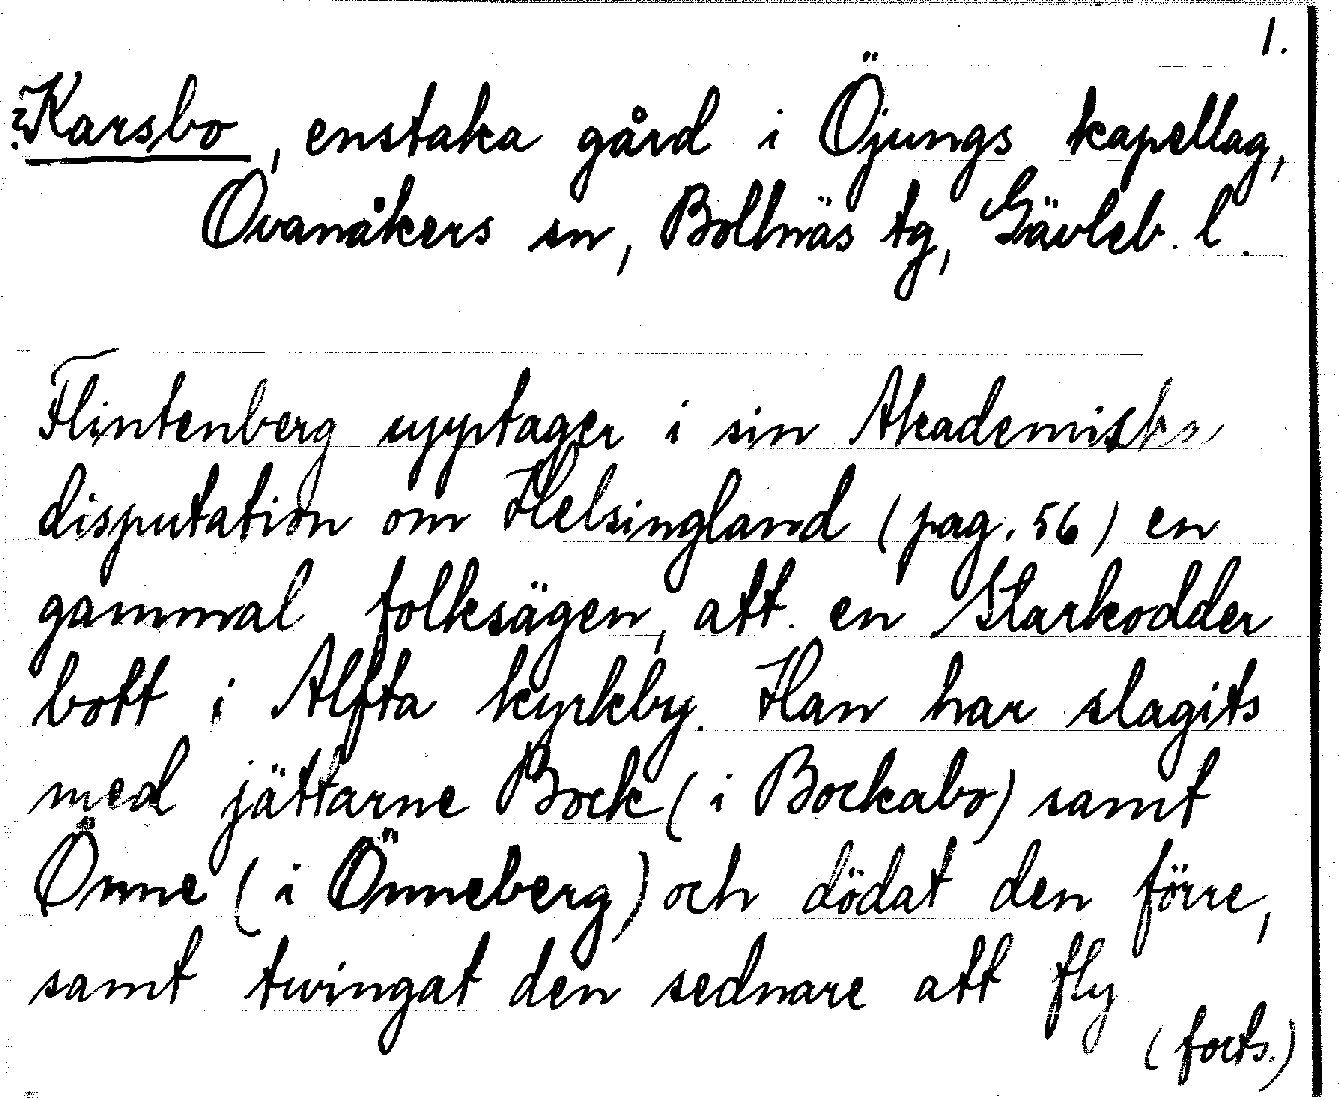 1.
?Karsbo, enstaka gård i Öjungs kapellag,
Ovanåkers sn, Bollnäs tg, Gävleb. l.
Flintenberg upptager i sin Akademiska
disputation om Helsingland (pag. 56) en
gammal folksägen, att en Starkodder
bott i Alfta kyrkby. Han har slagits
med jättarne Bock (i Bockabo) samt
Önne (i Önneberg) och dödat den förre,
samt twingat den sednare att fly
(forts.)